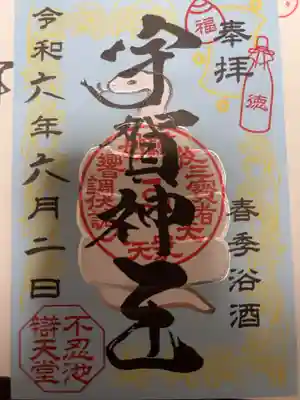 奉拝
徳
福
春季浴酒
宇賀神王
令和六年六月二日
不忍池
辯天堂